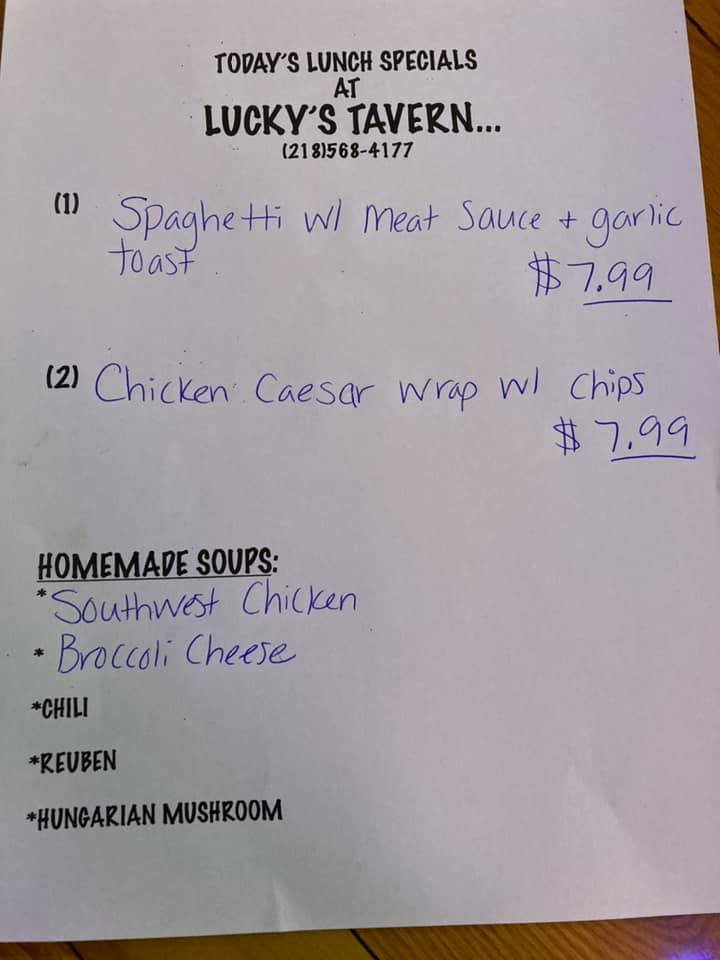 TODAY'S LUNCH SPECIALS
AT
LUCKY'S TAVERN...
(218)568-4177
(1) Spaghetti w/ Meat Sauce + garlic
toast
$7.99
(2) Chicken Caesar Wrap w/ Chips
$7.99
HOMEMADE SOUPS:
*Southwest Chicken
* Broccoli Cheese
*CHILI
*REUBEN
*HUNGARIAN MUSHROOM